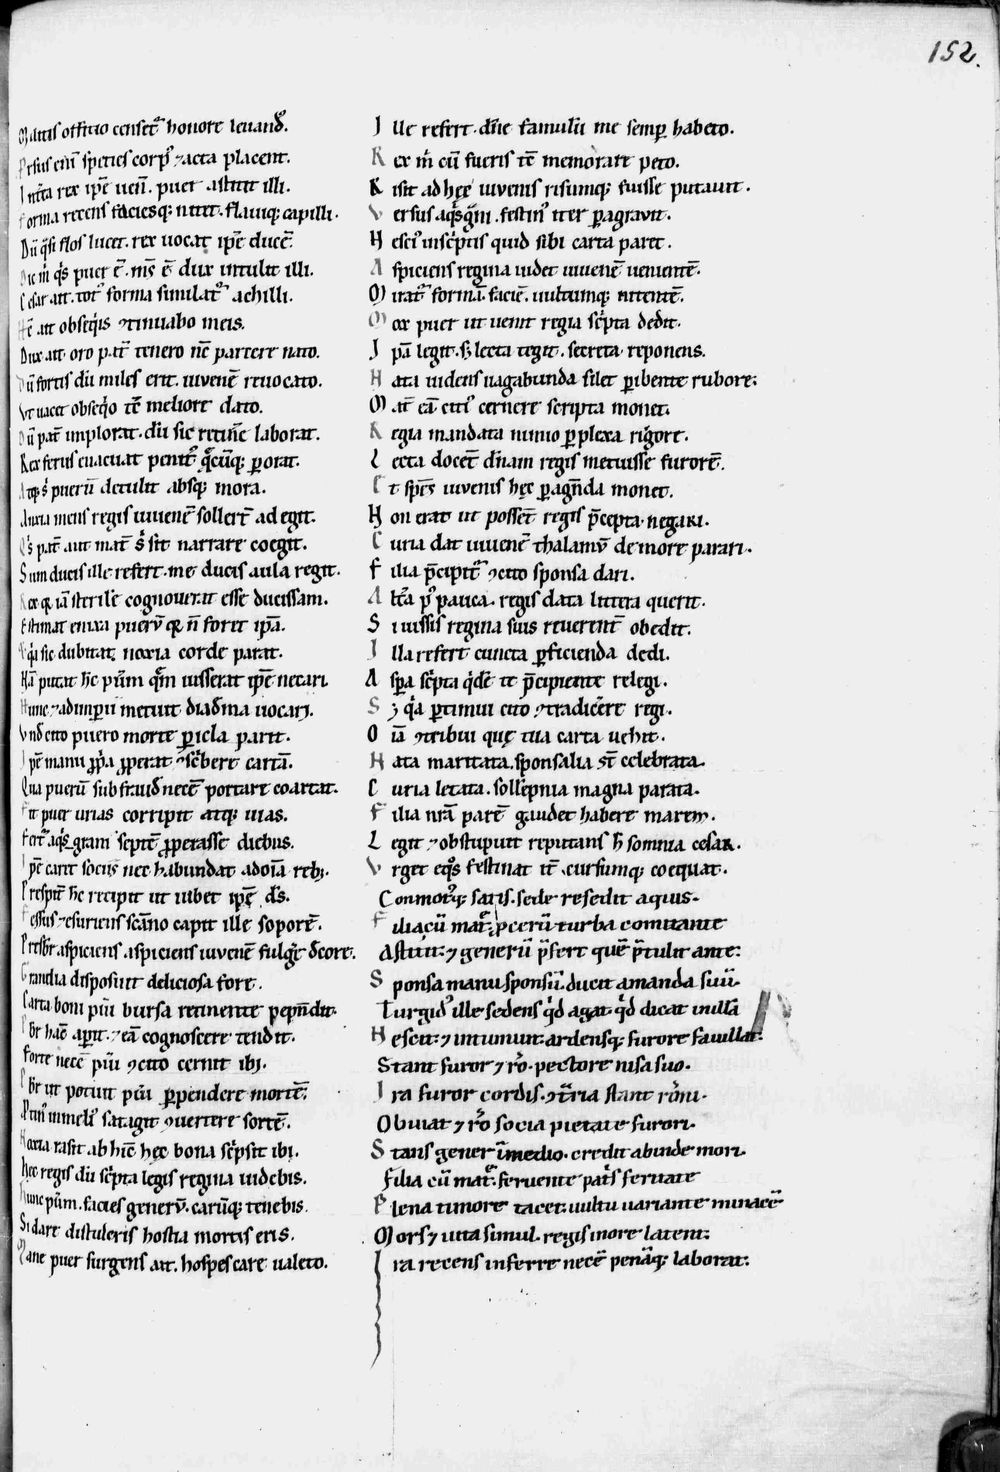 152.
Matris officio censet᷒ honore leuand᷒.
Prsus eni᷒ species corp᷒ ⁊ acta placent.
Int̄a rex ip̄e uen̄. puer astitit illi.
Forma recens faciesq; nitet. flauiq; capilli.
Dū q̄si flos lucet. rex uocat ip̄e ducē.
Dic m̄ q̄s puer ē. ms̄ ē dux intulit illi.
Cesar ait. tot᷒ forma similat᷒ achilli.
ē ait obseq̄is ꝯtinuabo meis.
Dux ait. oro pat̄ tenero nē parcere nato.
Dū fortis dū miles erit. iuuenē reuocato.
Vt uacet obseq̄o tē meliore dato.
Dū pat̄ implorat. dū sic retinē laborat.
Rex ferus euacuat penit᷒ q̄cūq; ꝑorat.
Atq; s̄ puerū detulit absq; mora.
Anxia mens regis iuuenē sollert̄ adegit.
Q̄s pat̄ aut mat̄ s̄ sit narrare coegit.
Sum ducis ille refert. me ducis aula regit.
Rex q; iā sterilē cognouerat esse ducissam.
Estimat enixa puerū q; n̄ foret ip̄a.
q̄i sic dubitat; noxia corde parat.
Nā putat hc̄ puerū q̄m iusserat ip̄e necari
Hunc ⁊ adimperii metuit diadēma uocari.
Vnd̄ cito puero morte ꝑicla parit.
Ipē manu ꝓp̄a ꝓperat ꝯsc̄bere cartā.
Qua puerū sub fraud̄ necē portare coartat.
It puer urias corripit atq; uias.
Fert᷒ aq̄sgrani septē ꝓperasse diebus.
Ipē caret sociis nec habundat ad oīa rebꝫ.
Prespit̄ hc̄ recipit ut iubet ipē d̄s.
Fessus ⁊ esuriens scāno capit ille soporē.
Presbr̄ aspiciens aspiciens iuuenē fulgēt̄ dcore.
Grandia disposuit deliciosa fore.
Carta boni pūi bursa retinente pepn̄dit.
Pbr̄ hāc aꝑit. ⁊ eā cognoscere tendit.
Forte necē pūi ꝯcito cernit ibi.
Pbr̄ ut potuit pūi ꝑpendere mortē.
Ptin᷒ inmeli᷒ satagit ꝯuertere sortē.
Noxia rasit ab hīc hęc bona sc̄psit ibi.
Hęc regis dū sc̄pta legis regina uidebis.
Hunc pūm. facies generū. carūq; tenebis.
Si dare distuleris hostia mortis eris.
Mane puer surgens ait. hospes care ualeto.
Ille refert. dn̄e famulū me semꝑ habeto.
Rex m̄ cū fueris tē memorare peto.
Risit ad hęc iuuenis risumq; fuisse putauit.
Versus aq̄sgͣni. festin᷒ iter ꝑagrauit.
Nesci᷒ insc̄ptis quid sibi carta paret.
Aspiciens regina uidet iuuenē uenientē.
Mirat᷒ formā. faciē. uultumq; nitentē.
Mox puer ut uenit regia sc̄pta dedit.
Ipā legit. s; lecta tegit. secreta reponens.
Nata uidens uagabunda silet ꝑibente rubore:
Mat̄ eā citi᷒ cernere scripta monet.
Regia mandata nimio ꝑplexa rigore.
Lecta docēt dn̄am regis metuisse furorē.
Et sp̄es iuuenis hęc ꝑagn̄da monet.
Non erat ut possēt regis p̄cepta negari.
Curia dat iuuenē thalamū de more parari.
Filia p̄cipit᷒ ꝯcito sponsa dari.
Alt̄a p᷒ pauca. regis data littera querit.
Si iussis regina suis reuerent̄ obedit.
Illa refert cuncta ꝑficienda dedi.
Aspa sc̄pta q̄dē te p̄cipiente relegi.
Sꝫ q̄a ꝑtimui cito ꝯtradic̄ere regi.
Oīa ꝯtribui quę tua carta uehit.
Nata maritata. sponsalia st̄ celebrata.
Curia letata. sollēpnia magna parata.
Filia nr̄a parē gaudet habere marem.
Legit ⁊ obstupuit reputans h̄ somnia cesar.
Vrget eq᷒s festinat it̄. cursumq; coequat.
Conmot᷒q; satis. sede resedit aquis.
Filia cū mat̄ ꝓcerū turba comitante
Astitit: ⁊ generū p̄fert quē p̄tulit ante:
Sponsa manu sponsū. ducit amanda suū.
Turgid᷒ ille sedens q̄d agat. q̄d dicat in illā
Nescit: ⁊ intumuit. ardensq; furore fauillat.
Stant furor ⁊ rō. pectore nisa suo.
Ira furor cordis. ꝯt̄ria stant rōni.
Obuiat ⁊ rō socia pietate furori.
Stans gener ī medio. credit abinde mori.
Filia cū mat̄ feruente pat̄s feritate
Plena timore tacet: uultu uariante minacē
Mors ⁊ uita simul. regis in ore latent:
Ira recens inferre necē penāq; laborat: